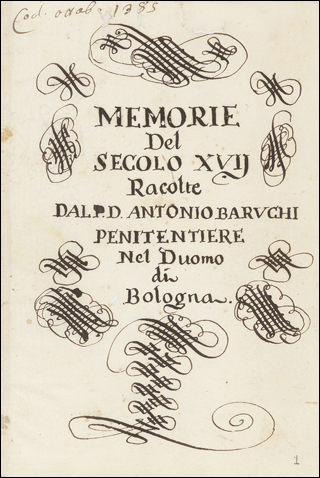 Cod. 1385
MEMORIE
Del
SECOLO XVIJ
Racolte
DAL P. D. ANTONIO BARVCHI
PENITENTIERE
Nel Duomo
di
Bologna.
1